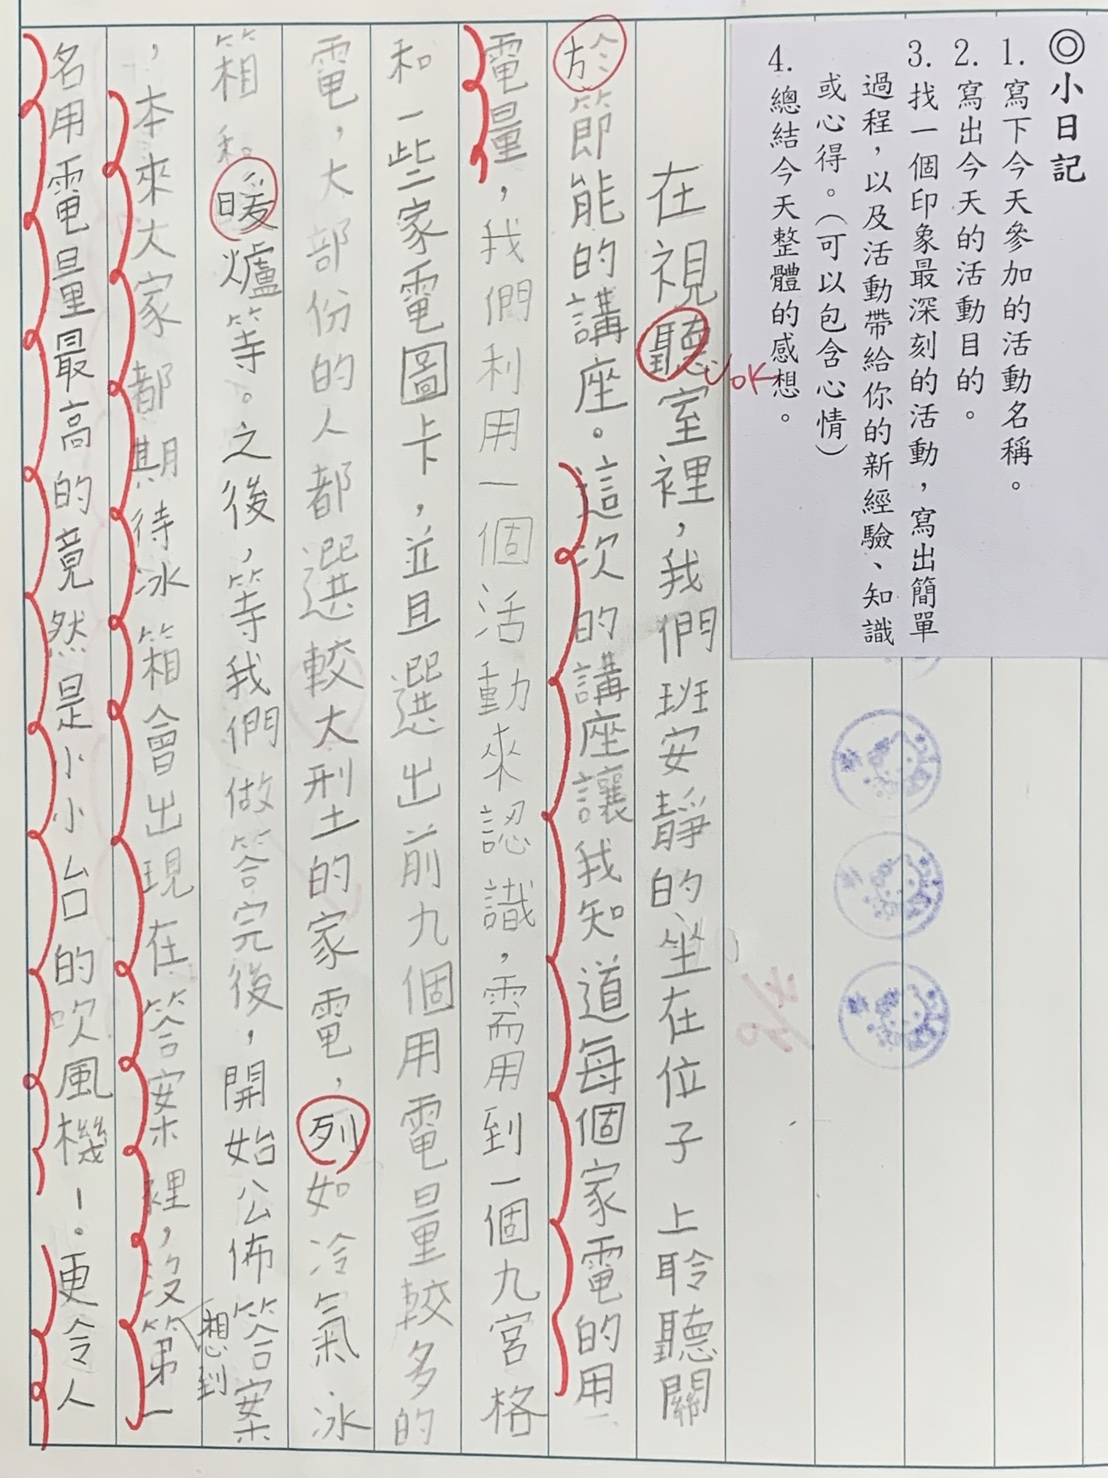 ◎小日記
1. 寫下今天參加的活動名稱。
2. 寫出今天的活動目的。
3. 找一個印象最深刻的活動，寫出簡單
過程，以及活動帶給你的新經驗、知識
或心得。（可以包含心情）
4. 總結今天整體的感想。
在視聽室裡，我們班安靜的坐在位子上聆聽關
OK
於節能的講座。這次的講座讓我知道每個家電的用
電量，我們利用一個活動來認識，需用到一個九宮格
和一些家電圖卡，並且選出前九個用電量較多的
電，大部份的人都選較大型的家電，列如冷氣冰
箱和暖爐等。之後，等我們做答完後，開始公佈答案
，本來大家都期待冰箱會出現在答案裡，沒想到第一
名用電量最高的竟然是小小台的吹風機！。更令人